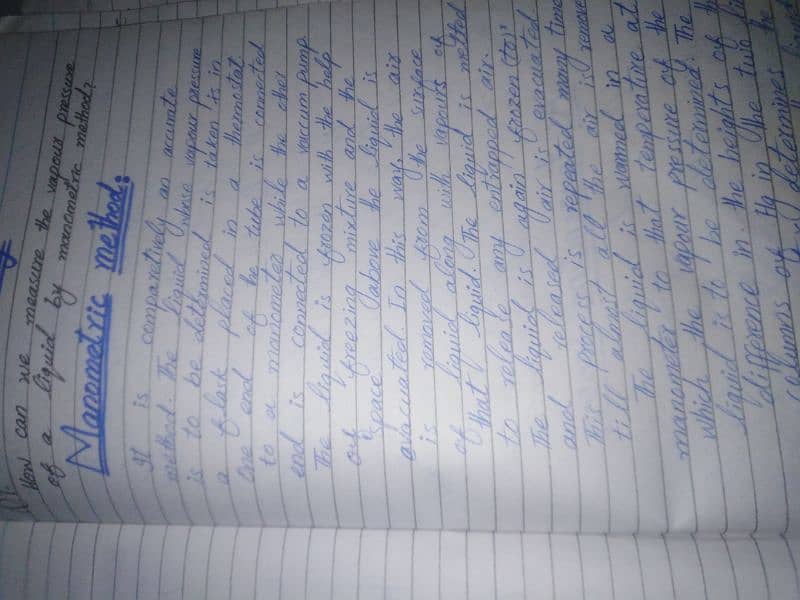 How can we measure the vapour pressure
of a liquid by manometric method?
Manometric method:
It is comparetively an accurate
method. The liquid whose vapour pressure
is to be determined is taken its in
a flask placed in a thermostat
One end of the tube is connected
to a manometer while the other
end is connected to a vaccum pump.
The liquid is frozen with the help
of freezing mixture and the
space above the liquid is
evacuated. In this way, the air
is removed from the surface
of liquid along with vapours of
that liquid. The liquid is melted
to release any entrapped air.
The liquid is again frozen (to)
and released air is evacuated
This process is repeated many time
till almost all the air is remove
The liquid is warmed in a
manometer to that temperative at
which the vapour pressure of the
liquid is to be determined. The
difference in the heights of the
columns of Hg in the two
determines the